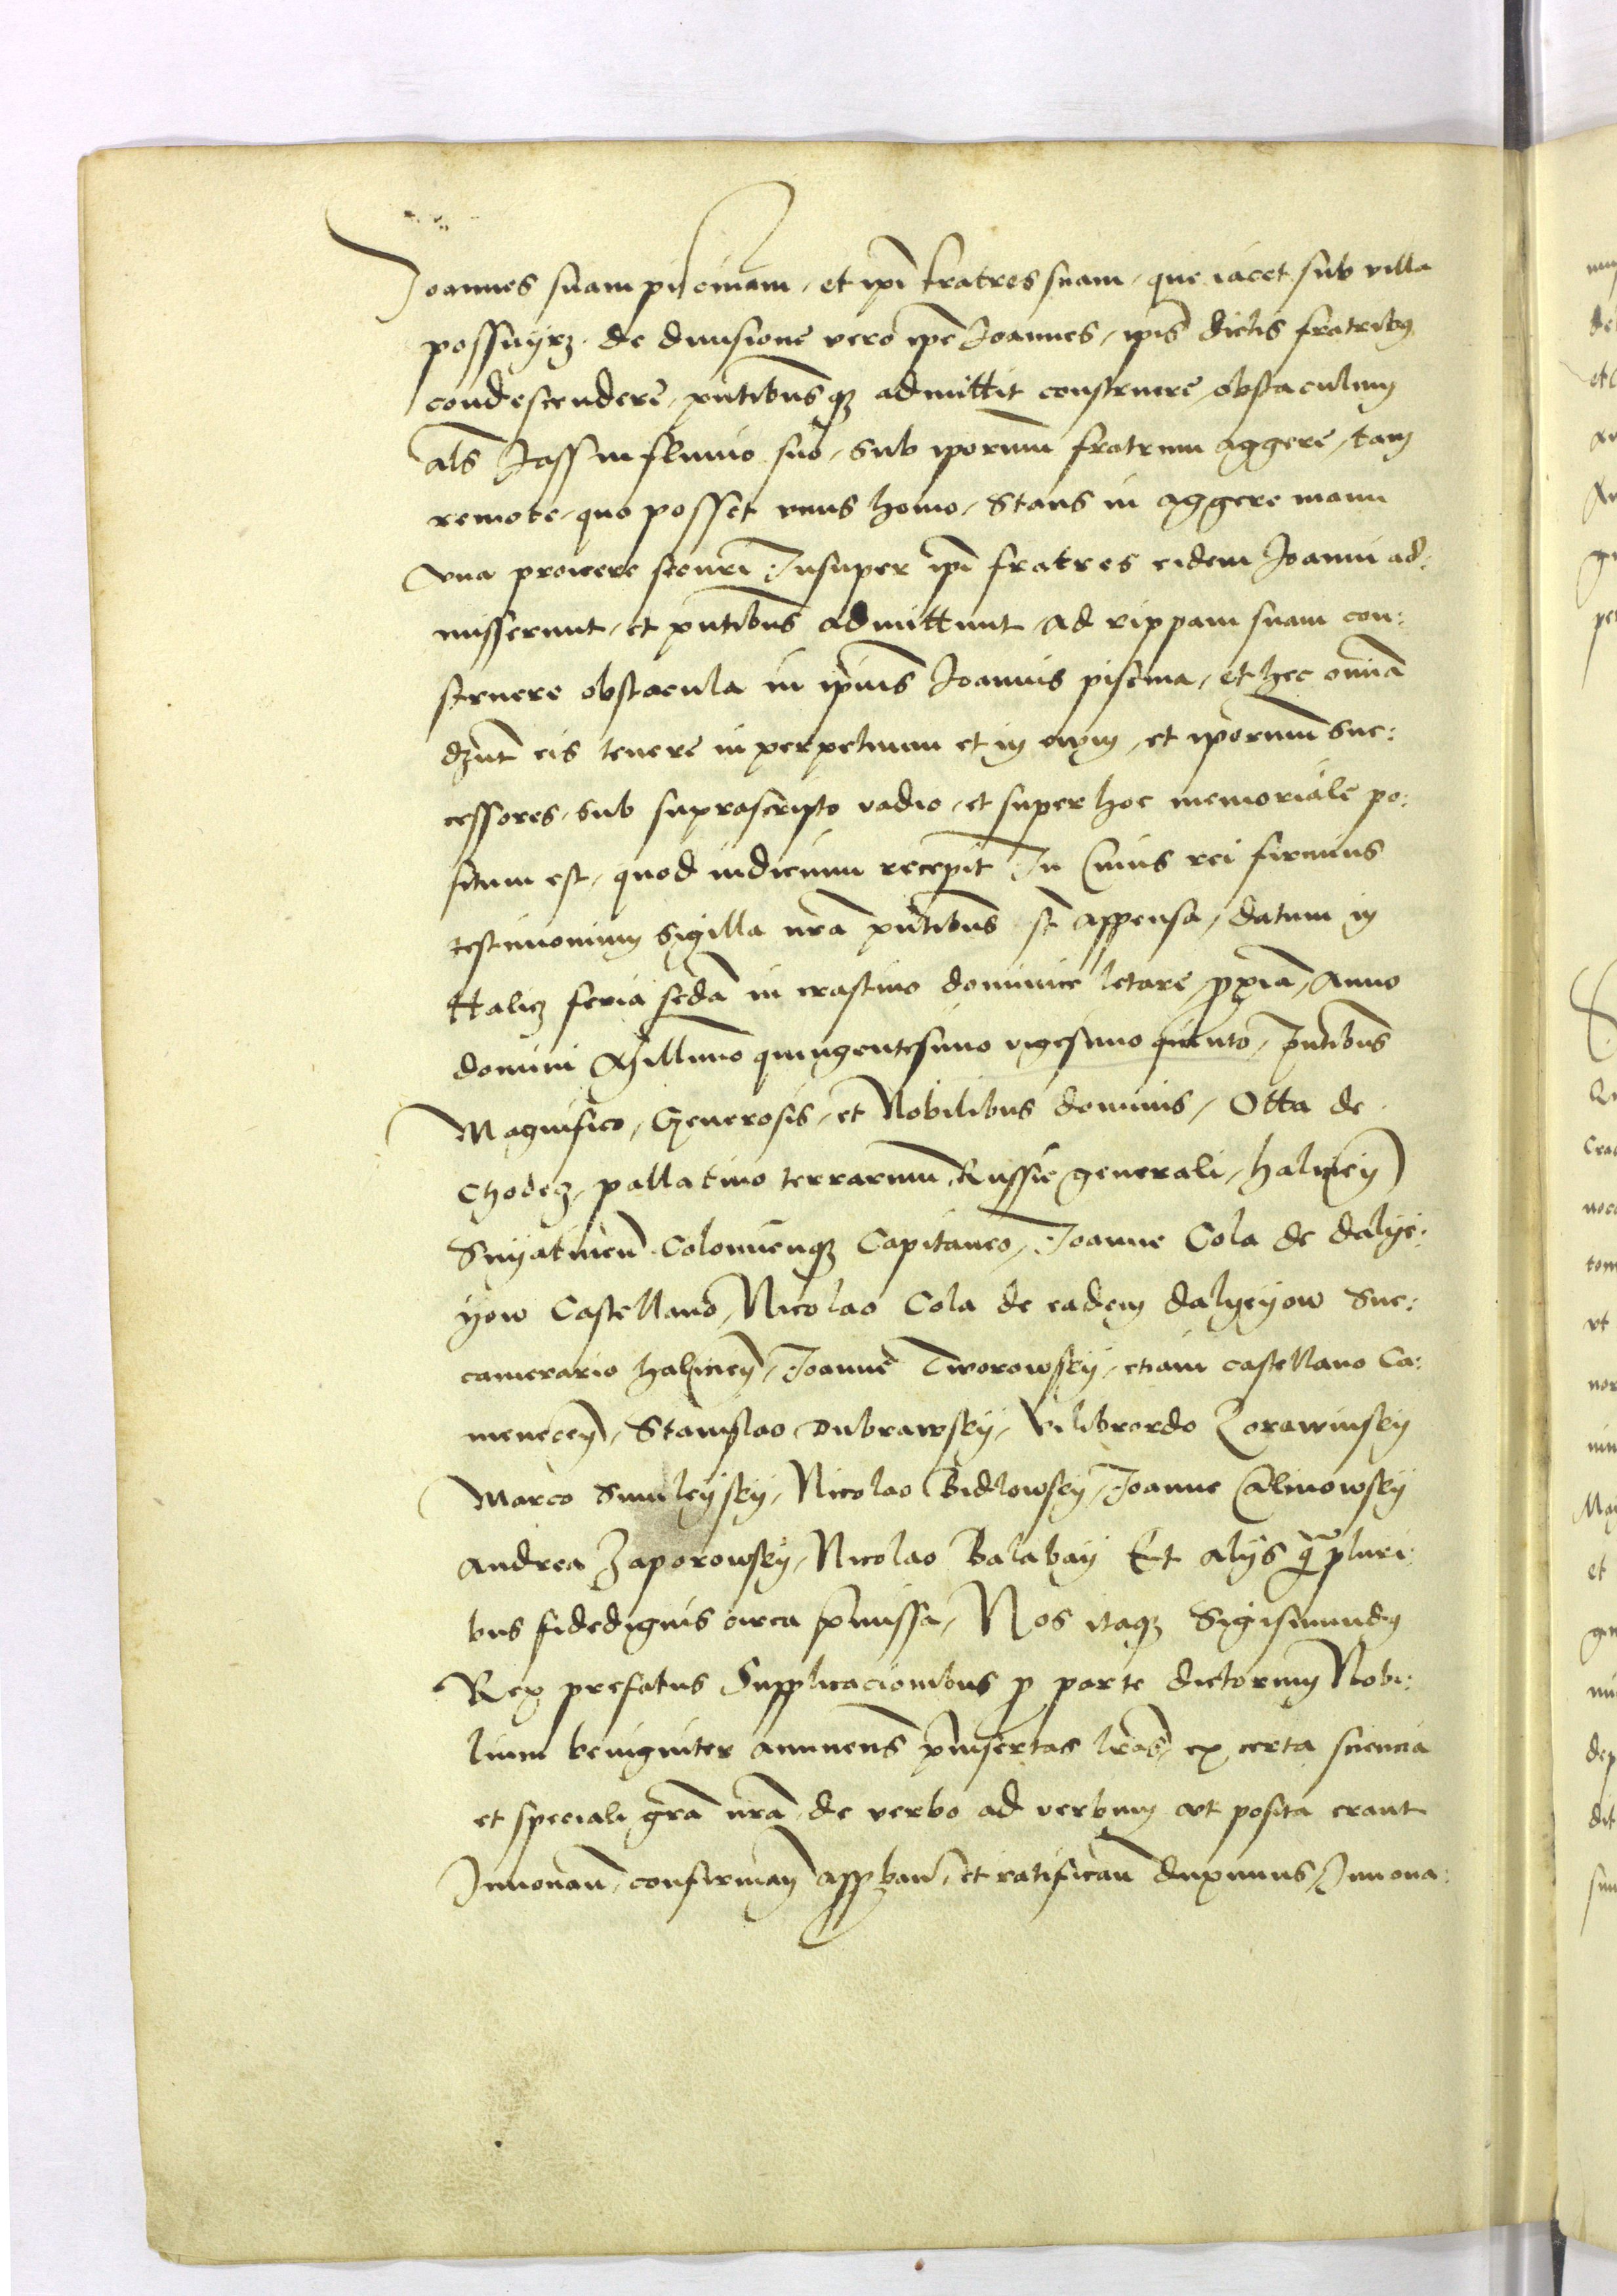 Joannes suam piscinam, et ipi fratres suam, que iacet sub villa
possuyrz. de diuisione vero ipe Joannes, ipis dictis fratribus
condescendere, pntibusq admittit construere obstaculum
als Jass in fluuio suo, sub iporum fratrum aggere, tam
remote, quo posset vnus homo, Stans in aggere manu
vna proicere securi. Insuper ipi fratres eidem Joanni ad:
misserunt, et pntibus admittunt ad rippam suam con:
struere obstacula in ipius Joannis piscina, et hec omia
eis tenere in perpetuum et in ewm, et iporum suc:
cessores, sub suprascripto vadio, et super hoc memoriale po:
situm est, quod iudicium recepit In Cuius rei firmius
testimonium Sigilla nra pntibus st appensa, datum in
Halicz feria scda in crastino dominice letare, pxia, Anno
domini Millimo quingentesimo vigesimo quinto, pntibus
Magnifico, Generosis, et Nobilibus dominis, Otta de
Chodecz, pallatino terrarum Russie generali, haliciej
Snyatinen Colomienq Capitaneo, Joanne Cola de dalye:
yow Castellano, Nicolao Cola de eadem dalyeyow Suc:
camerario haliciej, Joanne Tworowskij, etiam castellano Ca:
menecej, Stanislao Dubrawskij, Vilibrordo Zorawinskij
Marco Smuleyskij, Nicolao Bidlowskij, Joanne Calinowskij
Andrea Zaporowskij, Nicolao Balabay Et alijs q pluri:
bus fidedignis circa pmissa, Nos itaq Sigismundus
Rex prefatus Supplicacionibus p parte dictorum Nobi:
lium benigniter annuens pinsertas lras, ex certa sciencia
et speciali gra nra, de verbo ad verbum vt posita erant
Innouan, confirman appban, et ratifican duximus, Innoua: